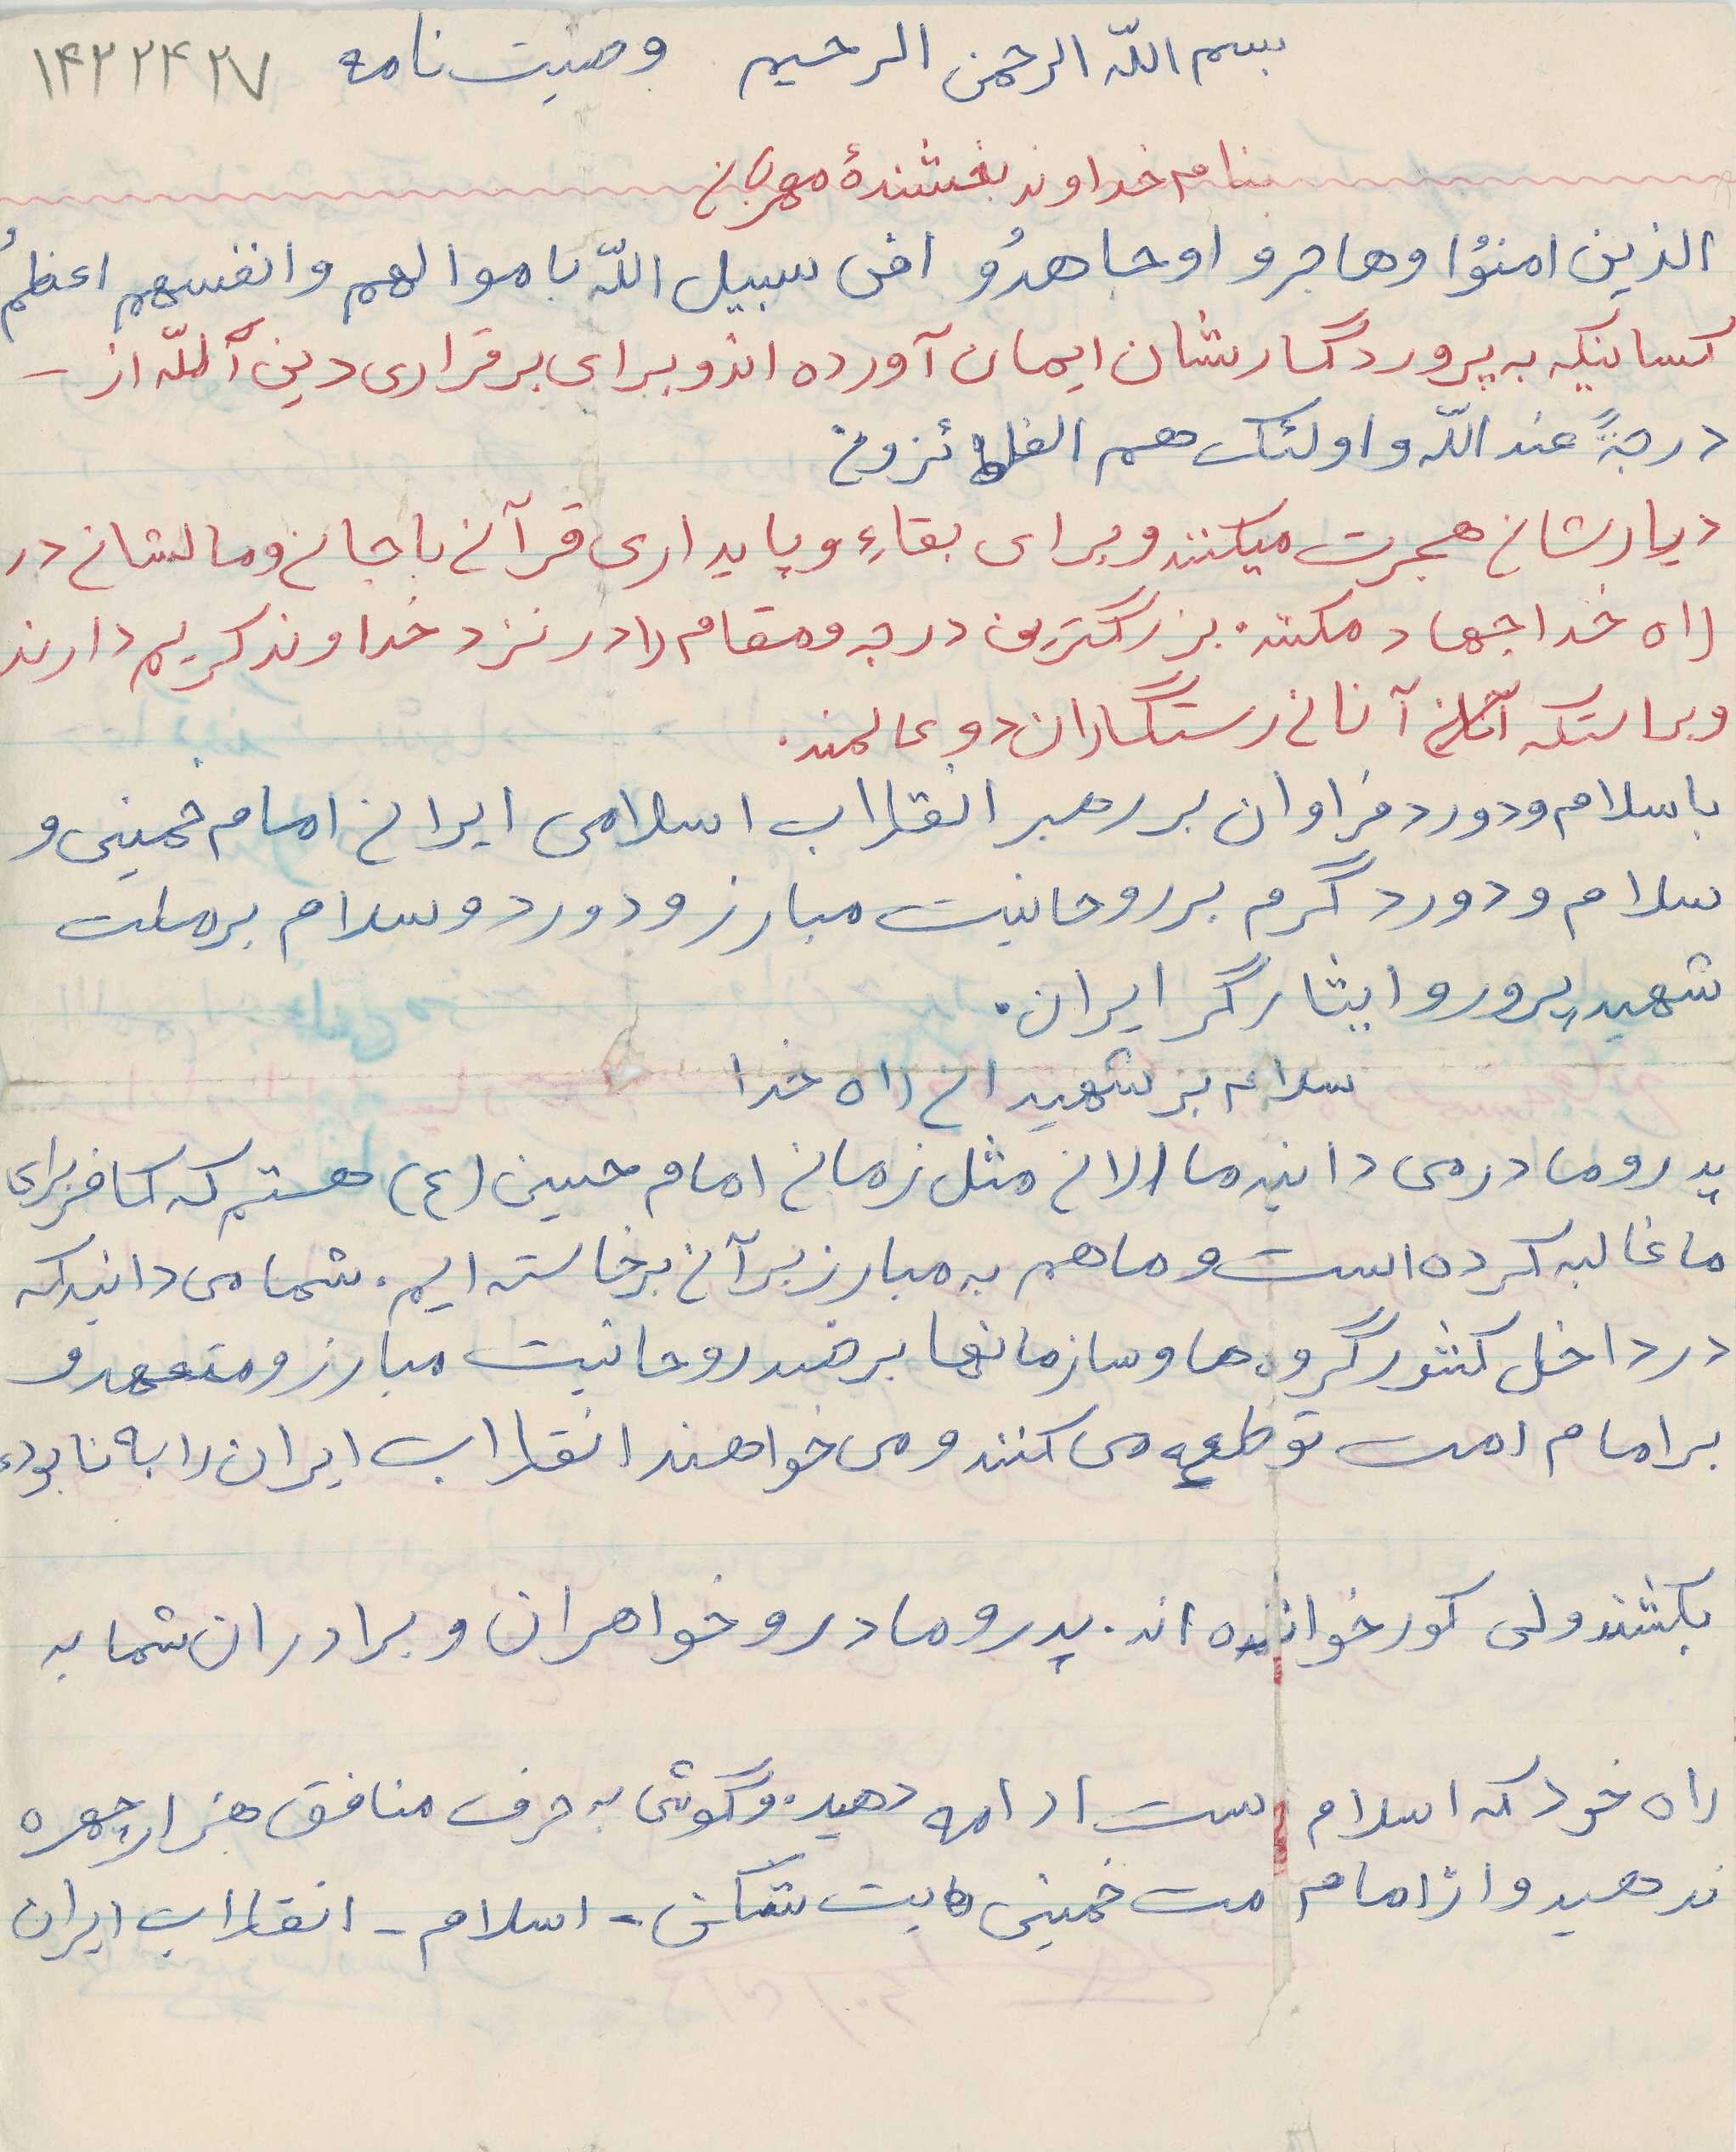 بسم اللّه الرحمن الرحیم وصیت نامه ۱۴۲۲۴۲۷
بنام خداوند بخشندهٔ مهربان
الذین امنوُا وهاجرو اوجاهدوُ افی سبیل اللّه باموالهم وانفسهم اعظمُ
کسانیکه به پروردگارشان ایمان آورده اند و برای برقراری دین اللّه از -
درجةً عند اللّه و اولئک هم الفائزون
دیارشان هجرت میکنند و برای بقاء و پایداری قرآن با جان و مالشان در
راه خدا جهاد مکنند. بزرگترین درجه و مقام را در نزد خداوند کریم دارند
وبراستکه آنان رستگاران دو عالمند.
باسلام و دورد فراوان بر رهبر انقلاب اسلامی ایران امام خمینی و
سلام و دورد گرم بر روحانیت مبارز و دورد و سلام بر ملت
شهید پرور و ایثارگر ایران.
سلام بر شهیدان راه خدا
پدر و مادر می دانید ما الان مثل زمان امام حسین (ع) هستیم که کافر برای
ما غالبه کرده است و ما هم به مبارز بر آن برخاسته ایم. شما می دانید که
در داخل کشور گروه ها و سازمانها بر ضد روحانیت مبارز و متعهد و
بر امام امت توطعه می کنند و می خواهند انقلاب ایران را به نابودی
بکشند ولی کور خوانده اند. پدر و مادر و خواهران و برادران شما به
راه خود که اسلام است ادامه دهید. و گوش به حرف منافق هزار چهره
ندهید و از امام مت خمینی بت شکن - اسلام - انقلاب ایران